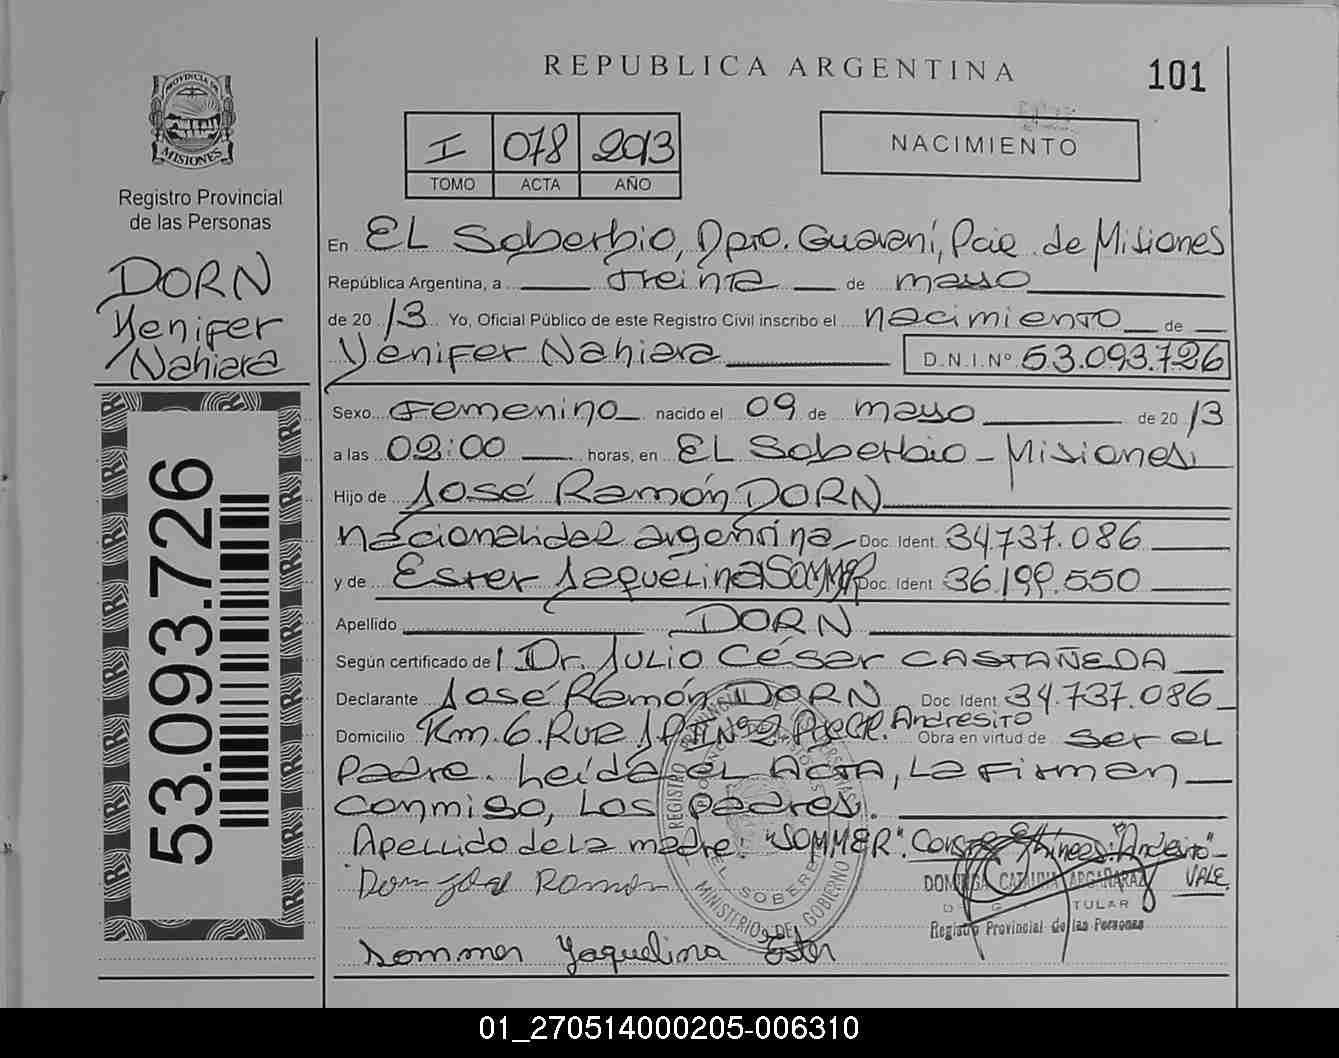 REPUBLICA ARGENTINA
101
PROVINCIA DE
MISIONES
Registro Provincial
de las Personas
DORN
Yenifer
Nahiara
53.093.726
I 078 2013
TOMO ACTA AÑO
NACIMIENTO
En EL Soberbio, Dpto. Guaraní, Pcia. de Misiones
República Argentina, a treinta de mayo
de 2013 Yo, Oficial Público de este Registro Civil inscribo el nacimiento de
Yenifer Nahiara D.N.I.Nº 53.093.726
Sexo Femenino nacido el 09 de mayo de 2013
a las 02:00 horas, en EL Soberbio - Misiones
Hijo de José Ramón DORN
nacionalidad argentina Doc. Ident. 34.737.086
y de Ester Jaquelina SOMMER Doc. Ident. 36.199.550
Apellido DORN
Según certificado de Dr. JULIO César CASTAÑEDA
Declarante José Ramón DORN Doc. Ident. 34.737.086
Domicilio Km. 6. Andresito Obra en virtud de ser el
Padre. Leída el ACTA, La Firman
conmigo, los padres.
Apellido de la madre: "SOMMER". "Andresito"
VALE.
Dorn José Ramón
TITULAR
Registro Provincial de las Personas
Sommer Yaquelina Ester
REGISTRO PROVINCIAL DE LAS PERSONAS
EL SOBERBIO
MINISTERIO DE GOBIERNO
01_270514000205-006310